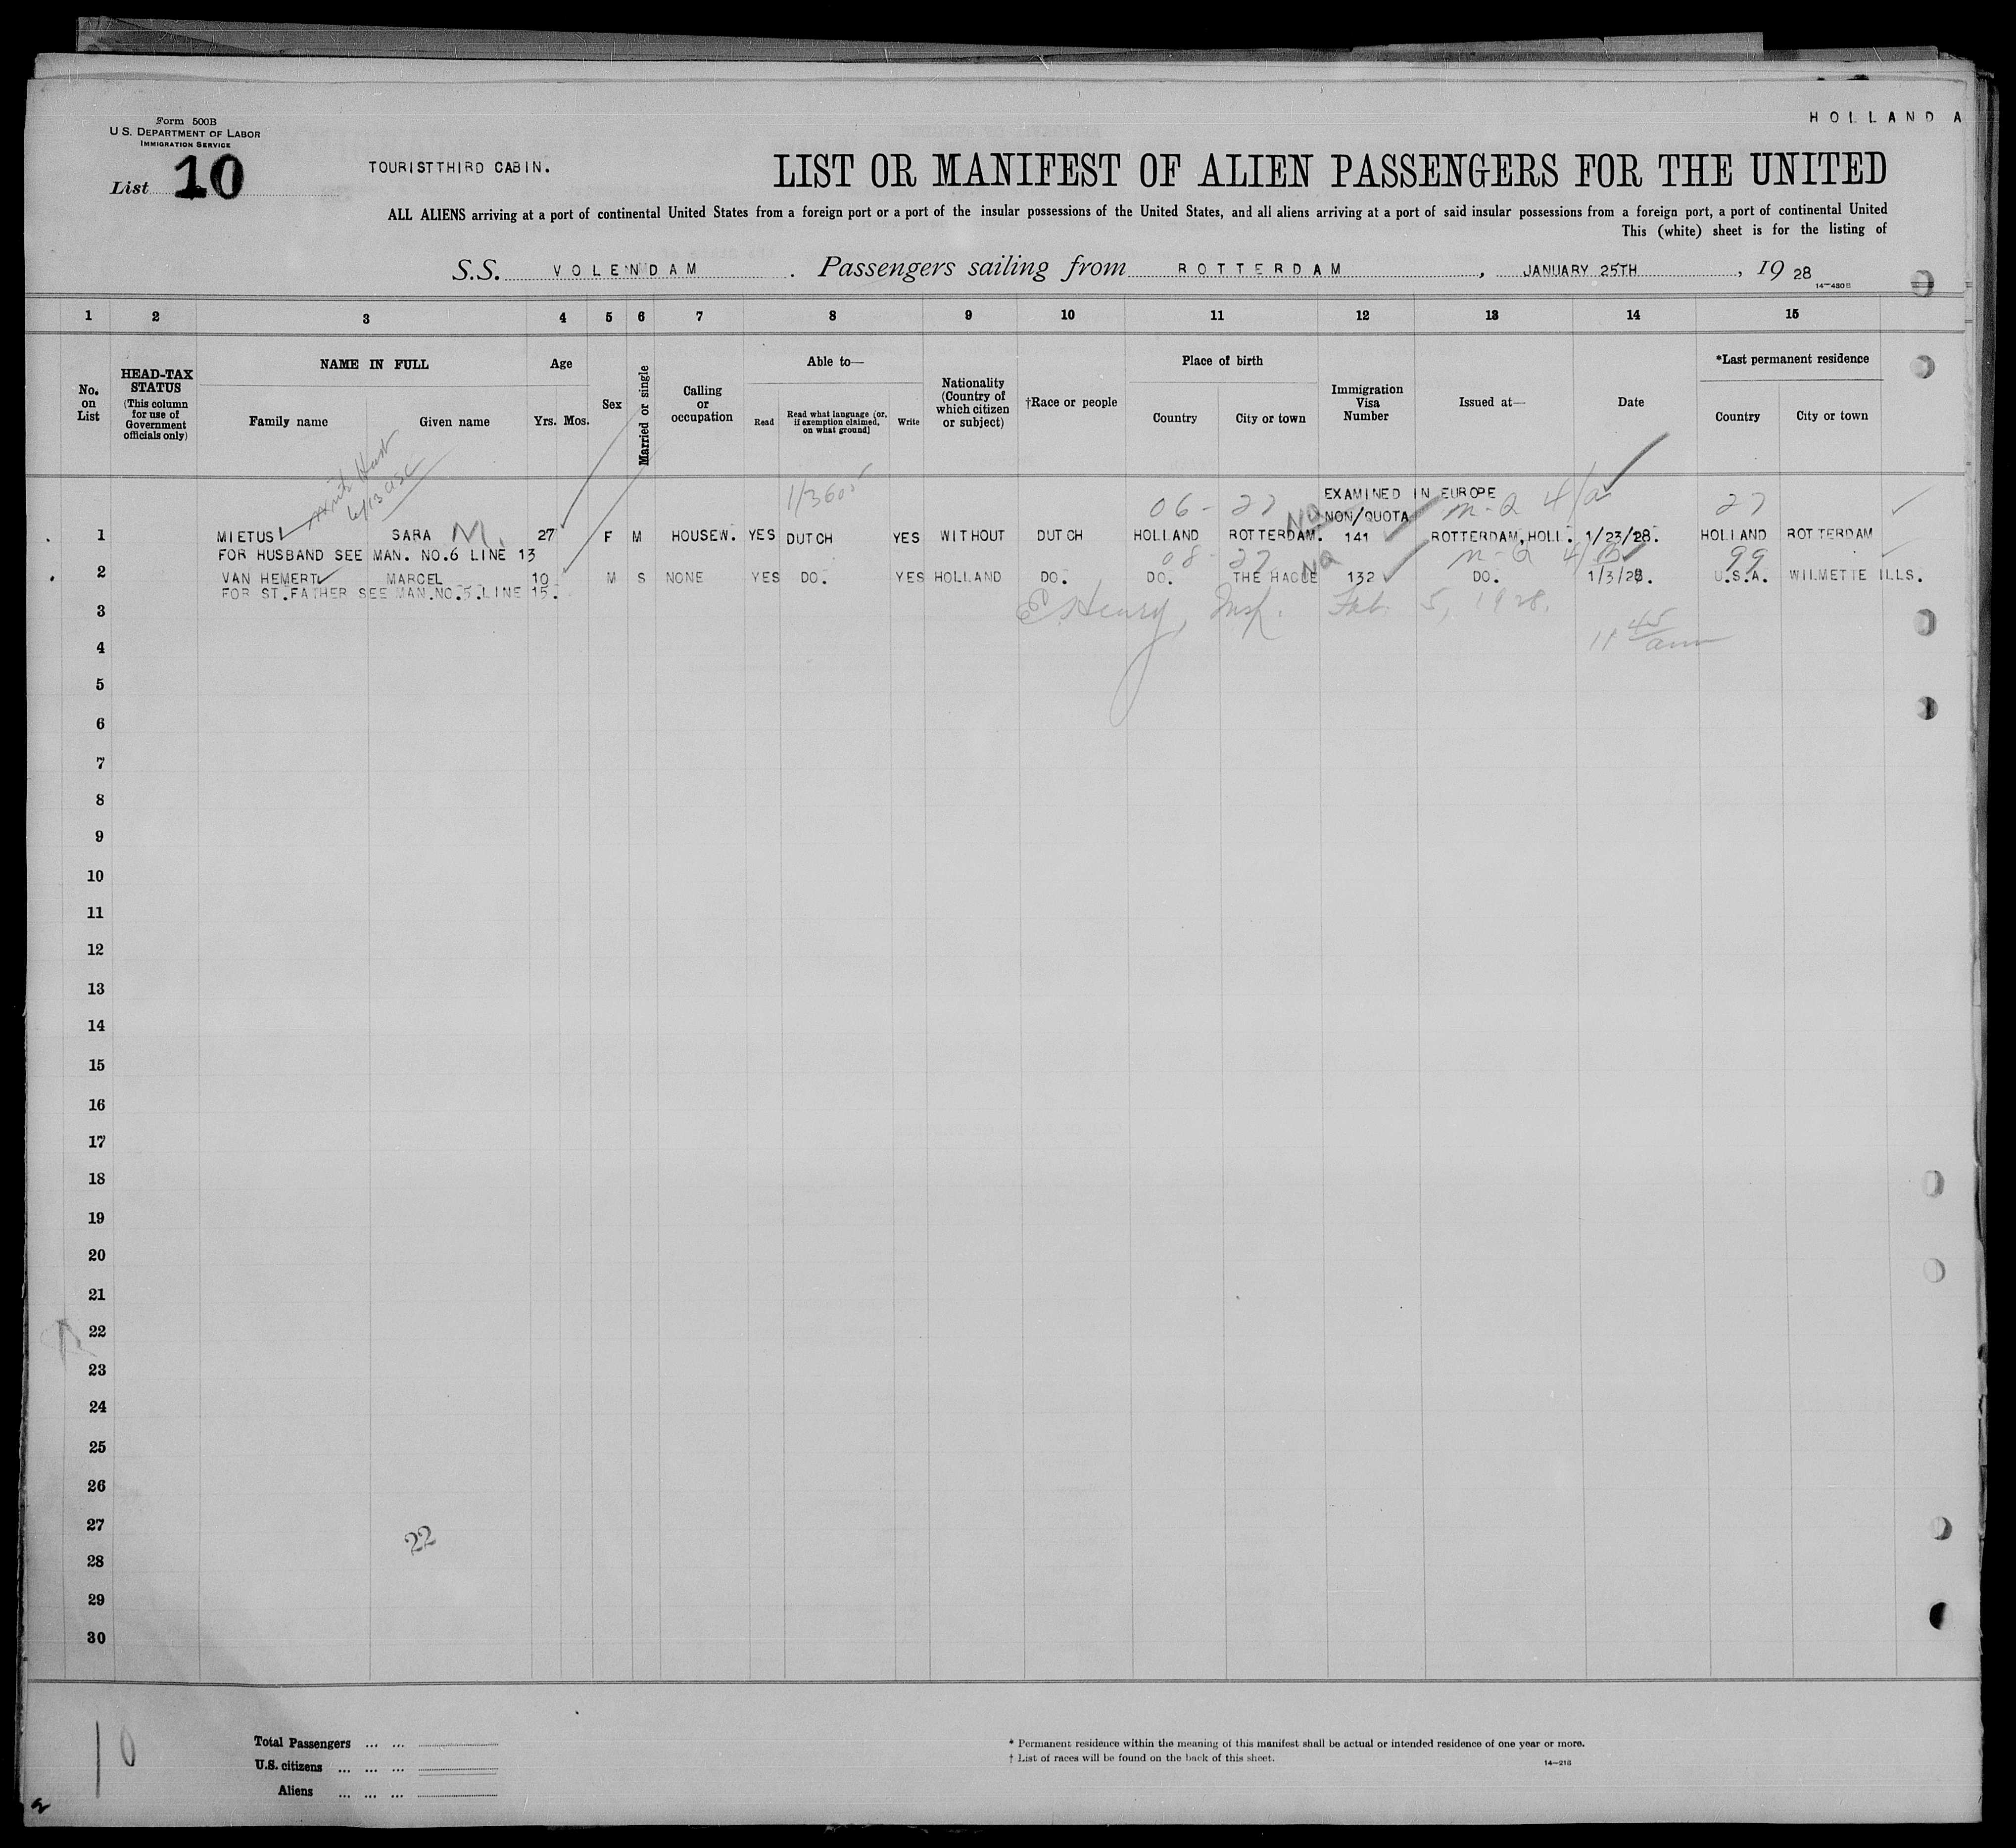 HOLLAND A
Form 500B
U S. DEPARTMENT OF LABOR
IMMIGRATION SERVICE
List 10
TOURISTTHIRD CABIN.
LIST OR MANIFEST OF ALIEN PASSENGERS FOR THE UNITED
ALL ALIENS arriving at a port of continental United States from a foreign port or a port of the insular possessions of the United States, and all aliens arriving at a port of said insular possessions from a foreign port, a port of continental United
This (white) sheet is for the listing of
S.S. VOLENDAM . Passengers sailing from ROTTERDAM , JANUARY 25TH , 19 28
14—430 B
1 2 3 4 5 6 7 8 9 10 11 12 13 14 15
No. on List
HEAD-TAX STATUS (This column for use of Government officials only)
NAME IN FULL
Family name Given name
Age
Yrs. Mos.
Sex
Married or single
Calling or occupation
Able to—
Read Read what language [or, if exemption claimed, on what ground] Write
Nationality (Country of which citizen or subject)
†Race or people
Place of birth
Country City or town
Immigration Visa Number
Issued at—
Date
*Last permanent residence
Country City or town
6/13 USC
1/3605 06- 27 EXAMINED IN EUROPE 27
No NON/QUOTA
1 MIETUS SARA M. 27 F M HOUSEW. YES DUTCH YES WITHOUT DUTCH HOLLAND ROTTERDAM. 141 ROTTERDAM,HOLL. 1/23/28. HOLLAND ROTTERDAM
FOR HUSBAND SEE MAN. NO.6 LINE 13
08- 27 No 99
2 VAN HEMERT MARCEL 10 M S NONE YES DO. YES HOLLAND DO. DO. THE HAGUE 132 DO. 1/3/28. U.S.A. WILMETTE ILLS.
FOR ST.FATHER SEE MAN.NO.5.LINE 15.
3 E. Henry, Insp. Feb. 5, 1928.
4 11 45 am
5
6
7
8
9
10
11
12
13
14
15
16
17
18
19
20
21
22
23
24
25
26
27
22
28
29
30
10
Total Passengers ... ...
U.S. citizens ... ... ...
Aliens ... ... ...
* Permanent residence within the meaning of this manifest shall be actual or intended residence of one year or more.
† List of races will be found on the back of this sheet.
14—218